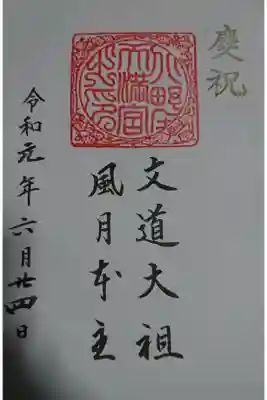 慶祝
北野
天満宮
文道大祖
風月本主
令和元年六月廿四日